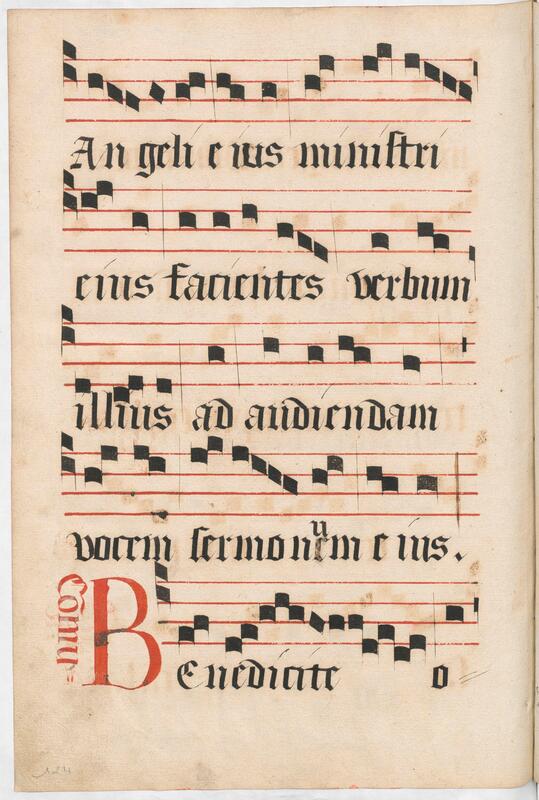 An geli e ius ministri
eius facientes verbum
illius ad audiendam
vocem sermo num e ius.
Comu=
BEnedicite o=